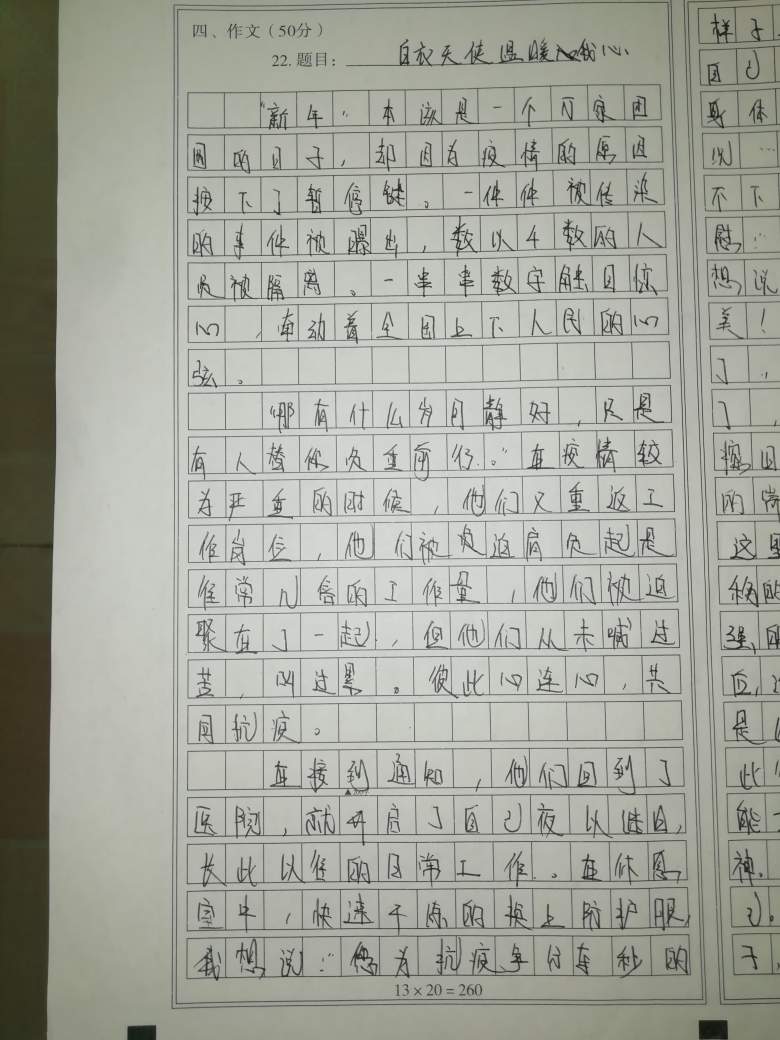 四、作文（50分）
22. 题目： 白衣天使温暖我心
"新年"本该是一个万家团
圆的日子，却因为疫情的原因
按下了暂停键。一件件被传染
的事件被曝出，数以千数的人
员被隔离。一串串数字触目惊
心，牵动着全国上下人民的心
弦。
"哪有什么岁月静好，只是
有人替你负重前行。"在疫情较
为严重的时候，他们又重返工
作岗位，他们被迫肩负起是
往常几倍的工作量，他们被迫
聚在了一起，但他们从未喊过
苦，叫过累。彼此心连心，共
同抗疫。
在接到通知，他们回到了
医院，就开启了自己夜以继日，
长此以往的日常工作。在休息
室中，快速干练的换上防护服，
我想说："您为抗疫争分夺秒的
13×20＝260
样子
自己
身体
说…
不下
慰…
想说
美！
了，
了，
擦
的
这里
是
此
能
神.
己。
子，